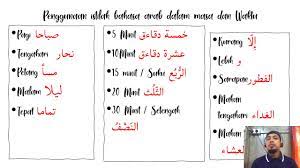 Penggunaan istilah bahasa arab dalam masa dan Waktu
Pagi صباحا
Tengahari نحار
Petang مساً
Malam ليلا
Tepat تماما
5 Minit خمسة دقاءق
10 Minit عشرة دقاءق
15 minit / Suku الرُّبُع
20 Minit الثُّلُث
30 Minit / Setengah
النَصْفُ
Kurang إلّا
Lebih و
Sarapan الفطور
Makan
tengahari الغداء
Makan
العشاء